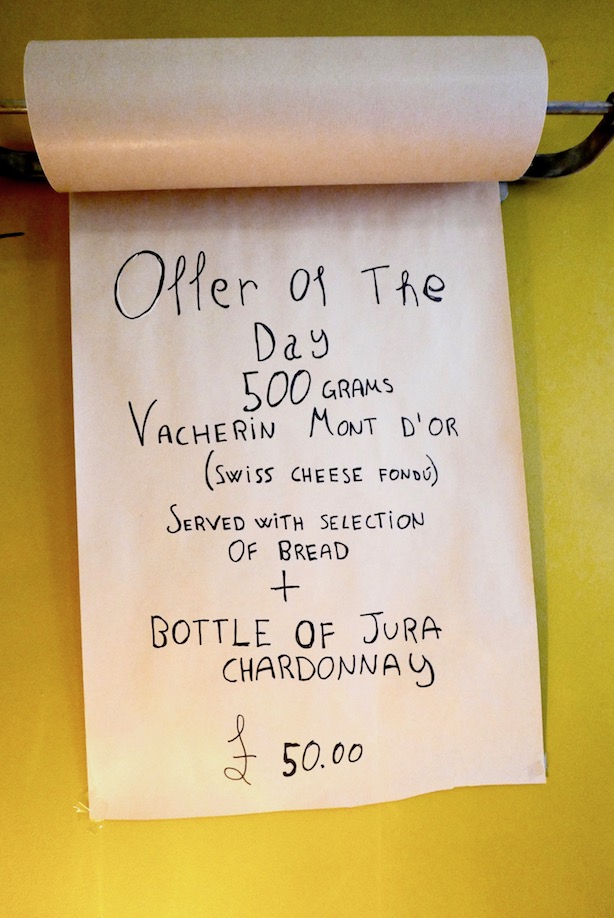 Offer Of The
Day
500 GRAMS
VACHERIN MONT D'OR
(SWISS CHEESE FONDÚ)
SERVED WITH SELECTION
OF BREAD
+
BOTTLE OF JURA
CHARDONNAY
£ 50.00